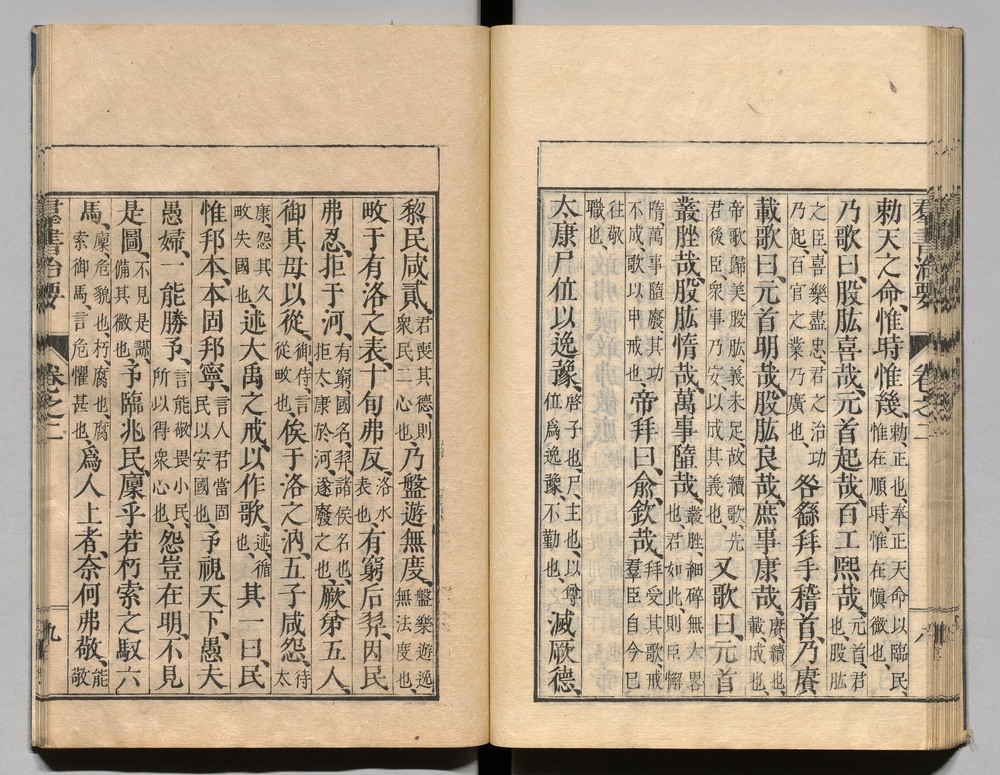 勅天之命、惟時惟幾、勅、正也、奉正天命以臨民、惟在順時、惟在愼微也、
乃歌曰、股肱喜哉、元首起哉、百工熙哉、元首、君也、股肱
之臣、喜樂盡忠、君之治功乃起、百官之業乃廣也、咎繇拜手稽首、乃賡
載歌曰、元首明哉、股肱良哉、庶事康哉、賡、續也、載、成也、
帝歌歸美股肱、義未足、故續歌、先君後臣、衆事乃安、以成其義也、又歌曰、元首
叢脞哉、股肱惰哉、萬事墮哉、叢脞、細碎無大畧也、君如此、則臣懈
惰、萬事墮廢、其功不成、歌以申戒也、帝拜曰、兪、欽哉、拜受其歌、戒羣臣自今已
往敬職也、
太康尸位以逸豫、啓子也、尸、主也、以尊位爲逸豫、不勤也、滅厥德、
羣書治要
卷之二
八
黎民咸貳、君喪其德、則衆民二心也、乃盤遊無度、盤樂遊逸、無法度也、
畋于有洛之表、十旬弗反、洛水表也、有窮后羿、因民
弗忍、拒于河、有窮、國名、羿、諸侯名也、拒太康於河、遂廢之也、厥弟五人、
御其母以從、御、侍、言從畋也、徯于洛之汭、五子咸怨、待太
康、怨其久畋失國也、述大禹之戒、以作歌、述、循也、其一曰、民
惟邦本、本固邦寧、言人君當固民以安國也、予視天下、愚夫
愚婦、一能勝予、言能敬畏小民、所以得衆心也、怨豈在明、不見
是圖、不見是謀、備其微也、予臨兆民、廩乎若朽索之馭六
馬、廩、危貌也、朽、腐也、腐索御馬、言危懼甚也、爲人上者、奈何弗敬、能敬
羣書治要
卷之二
九